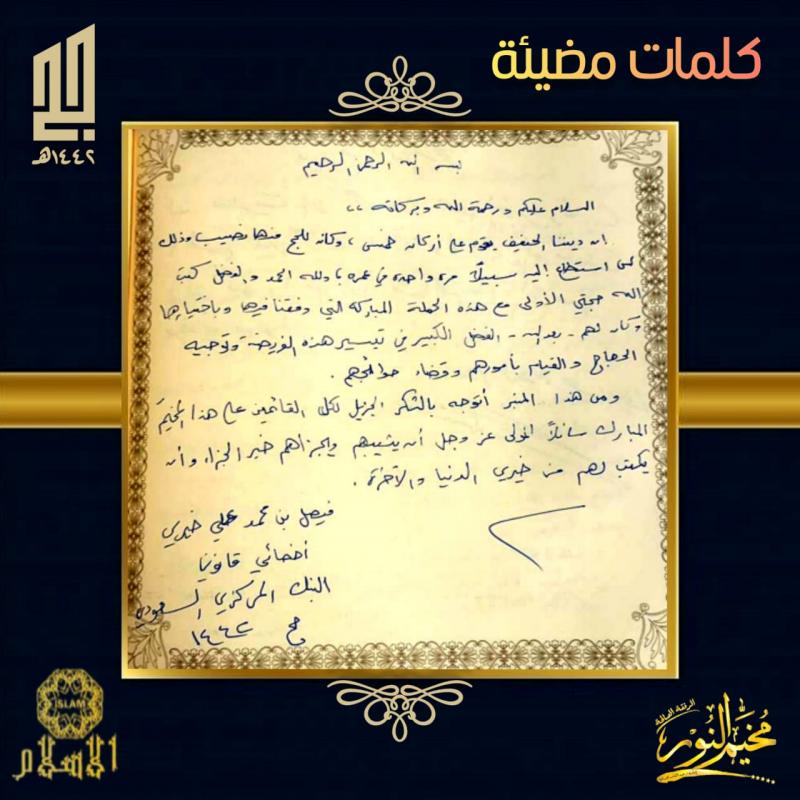 كلمات مضيئة
١٤٤٢هـ
بسم الله الرحمن الرحيم
السلام عليكم ورحمة الله وبركاته ،،
ان ديننا الحنيف يقوم على أركان خمس ، وكان للحج منها نصيب وذلك
لمن استطاع إليه سبيلاً مرة واحدة في عمره ولله الحمد والفضل كتب
الله حجتي الأولى مع هذه الحملة المباركة التي وفقنا فيها وباختيارها
وكان لهم - بعد الله - الفضل الكبير في تيسير هذه الفريضة وتوجيه
الحجاج والقيام بأمورهم وقضاء حوائجهم .
ومن هذا المنبر أتوجه بالشكر الجزيل لكل القائمين على هذا المخيم
المبارك سائلاً المولى عز وجل أن يثيبهم ويجزاهم خير الجزاء وأن
يكتب لهم من خيري الدنيا والآخرة .
فيصل بن محمد علي خيري
أخصائي قانوني
البنك المركزي السعودي
حج ١٤٤٢
ISLAM
الاسلام
مخيم النور